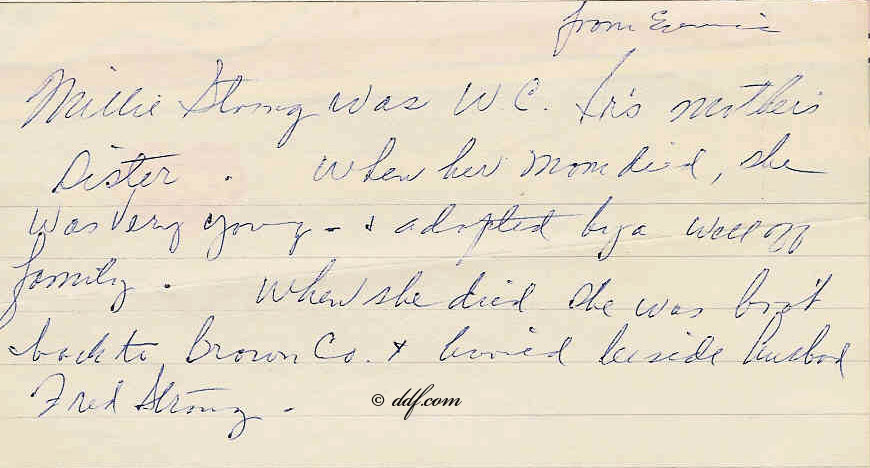 from Ermine
Millie Strong was W.C. Jr's mothers
Sister . When her Mom died, she
was very young - & adopted by a well off
family . When she died she was bro't
back to Brown Co. & buried beside husbad
Fred Strong .
© ddf.com